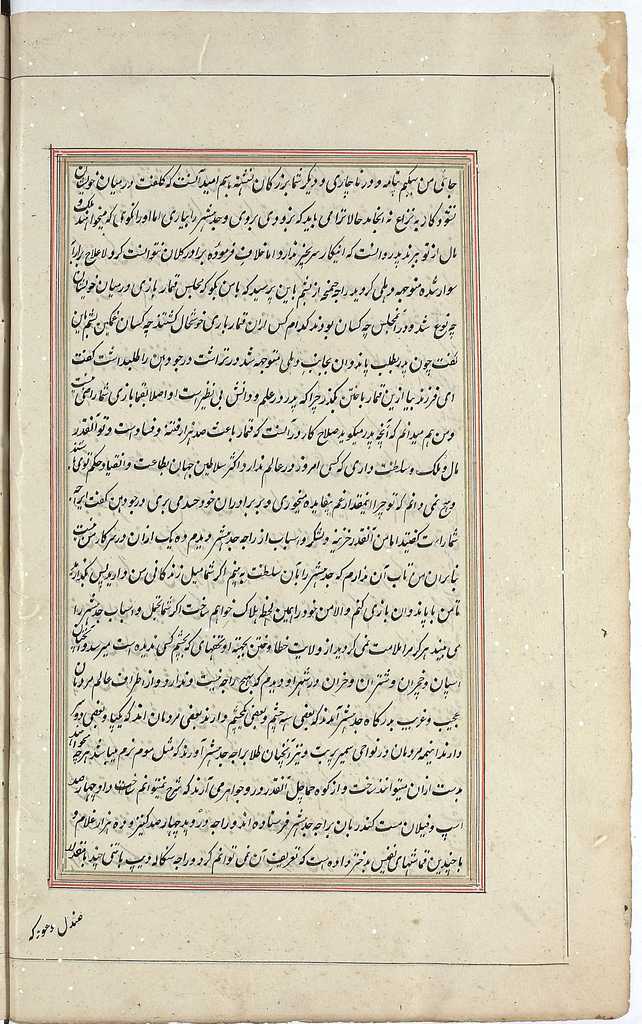 جائی من میکنم نپامه و ور ناچاری و دیگر شما بزرکان نشسته باهم امید آنست که کلفت در میان خویشان
نشود و کار به نزاع نه انجامد حالا ترا می باید که بزودی بروی و جدهشتر را بیاری اما او را نگوئی که میخواهند ملک و
مال از تو ببرند بدر دانست که اینکار سرانجیر ندارد اما خلاف فرموده برادر کلان نتوانست کرد لاعلاج بر ارابه
سوار شده متوجه دهلی کردید راجه جنمیجه از بیشم پاین پرسید که با من بکو که مجلس قمار بازی در میان خویشان
چه نوع شد و در آن مجلس چه کسان بودند کدام کس ازان قمار بازی خوشحال کشتند چه کسان غمکین بیشم پاین
گفت چون بدر بطلب پاندوان بجانب دهلی متوجه شد دهرتراشت درجودهن را طلبداشت گفت
ای فرزند بیا ازین قمار باختن بگذر چرا که بدر در علم و دانش بی نظیر است او اصلا بقمار بازی شما راضی نیست
و من هم میدانم که آنچه بدر میکوید صلاح کار در آنست که قمار باعث صد هزار فتنه و فساد است و تو آنقدر
مال و ملک و سلطنت داری که کسی امروز در عالم ندارد اکثر سلاطین جهان بطاعت و انقیاد حکم توی باشند
و هیچ نمی دانم که تو چرا اینقدر غم بیفایده میخوری و بر برادران خود حسد می بری درجودهن گفت ایراجه
شما راست گفتید اما من آنقدر خزینه و لشکر و اسباب از راجه جدهشتر دیدم که ده یک ازان در سرکار من نیست
بنابران من تاب آن ندارم که جدهشتر را بآن سلطنت به بینم اکر شما میل زندکانی من دارید پس بگذارید
تا من با پاندوان بازی کنم والا من خود را همین لحظه هلاک خواهم ساخت اکر شما تجمل و اسباب جدهشتر را
می دیدید هرگز مرا ملامت نمی کردید از ولایت خطا و ختن بجهته او تحفهای که بچشم کسی ندیده است میرسد و آنچنان
اسپان و خچران و شتران و خران در شهر او دیدم که هیچ راجه نیست و ندارد و از اطراف عالم مردمان
عجیب و غریب بدرکاه جدهشتر آمدند که بعضی سه چشم و بعضی یکچشم دارند بعضی مردمان اند که یکپا و بعضی دو کوش
دارند اینهمه مردمان در نواحی سمیر پربت و نیز آنچنان طلا براجه جدهشتر آورند که مثل موم نرم میباشد هرچه خواهند
بدست ازان میتوانند ساخت و از کوه هماچل آنقدر در و جواهر می آرند که شرح نمیتوانم ساخت و او چهار صد
اسپ و فیلان مست کندربان براجه جدهشتر فرستاده اند و راجه دروپد چهارصد کنیز و ده هزار غلام و
با چندین قماشهای نفیس بدختر داده است که تعریف آن نمی توانم کرد و راجه سنکله دیپ با تنی چند بانقدر
صندل و هوزکه